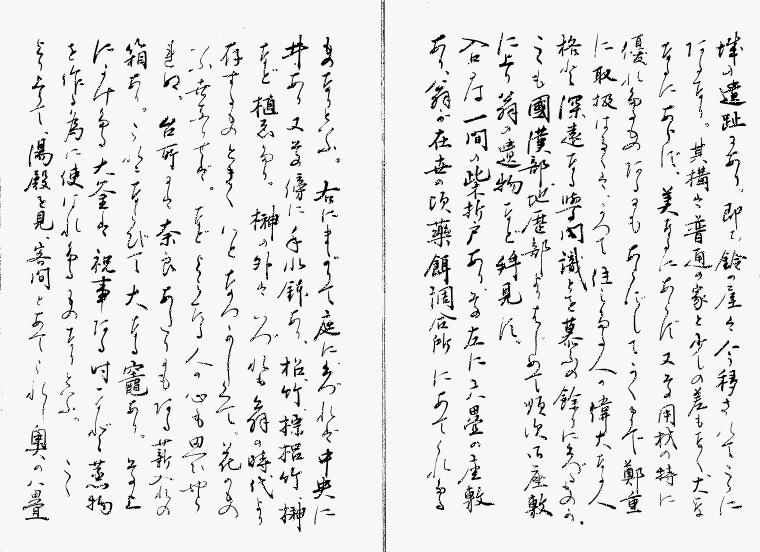 城の遺趾にあり。即ち鈴の屋は今移されてこゝに
あるなり。其構は普通の家と少しの差もなく、大な
るにあらず、美なるにあらず、又其用材の特に
優れるものあるにもあらずしてかくまで鄭重
に取扱はるゝは、かつて住ひける人の偉大なる人
格と深遠なる学問識見とを慕ふの餘りに出づるなり。
こも國漢部地歴部よりはじめて順次御座敷
に上り翁の遺物など拝見す。
入口には一間の柴折戸あり、其左に三八畳の座敷
あり、翁が在世の頃藥餌調合所にあてられける
ものなりと云ふ。右にまがりて庭に出づれば中央に
井あり又其傍に手水鉢あり、松竹棕梠竹、榊
など植ゑたり。榊の外はいづれも翁の時代より
存するものときくにいとなつかしくて、花のもの
いふ世ありせば。など
臺所には奈良あたりにもある薪入れの
箱あり。こゝにならびて大なる竈あり。其上
にかけたる大釜は祝事ある時これにて蒸物
を作る為に使はれたるものなりと云ふ。こゝ
よりして、湯殿を見、客間とあてられし奥の八畳